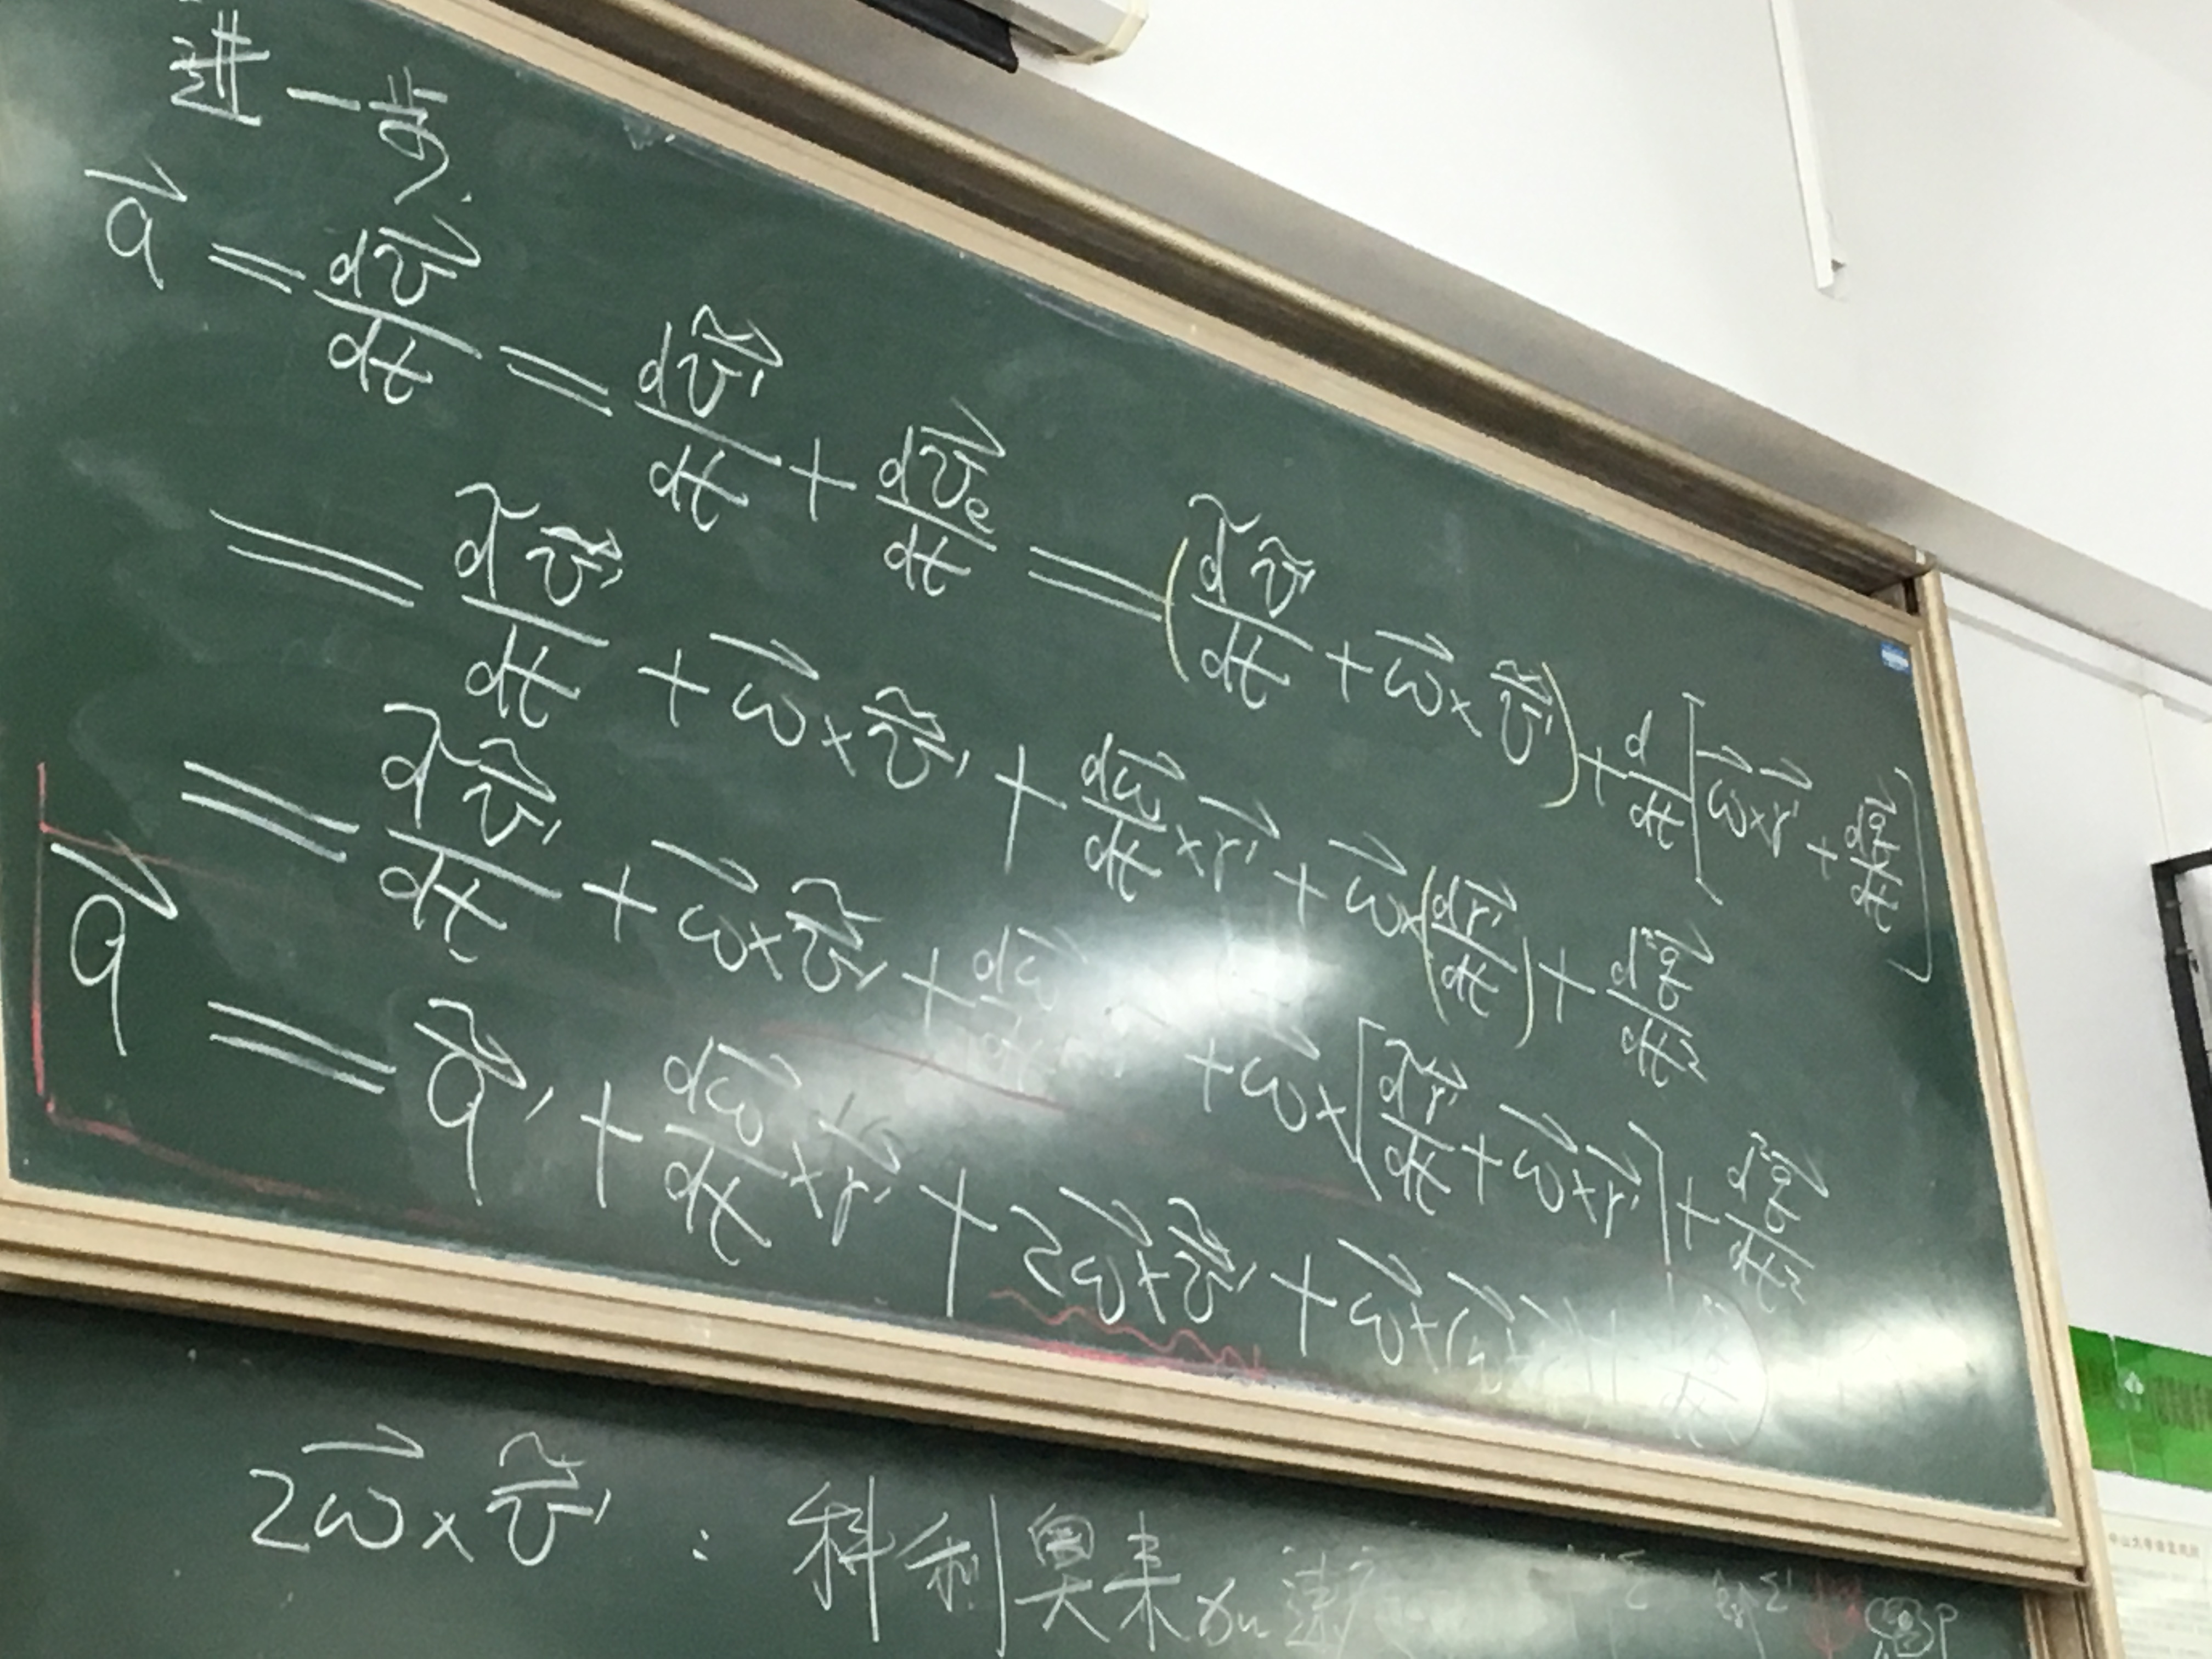 进一步
$\vec{a} = \frac{d\vec{v}}{dt} = \frac{d\tilde{\vec{v}}'}{dt} + \frac{d\vec{v}_e}{dt} = \left(\frac{\tilde{d}\tilde{\vec{v}}'}{dt} + \vec{\omega} \times \tilde{\vec{v}}'\right) + \frac{d}{dt}\left[\vec{\omega} \times \vec{r}' + \frac{d\vec{q}}{dt}\right]$
$= \frac{\tilde{d}\tilde{\vec{v}}'}{dt} + \vec{\omega} \times \tilde{\vec{v}}' + \frac{d\vec{\omega}}{dt} \times \vec{r}' + \vec{\omega} \times \left(\frac{d\vec{r}'}{dt}\right) + \frac{d^2\vec{q}}{dt^2}$
$= \frac{\tilde{d}\tilde{\vec{v}}'}{dt} + \vec{\omega} \times \tilde{\vec{v}}' + \frac{d\vec{\omega}}{dt} + \vec{\omega} \times \left[\frac{\tilde{d}\vec{r}'}{dt} + \vec{\omega} \times \vec{r}'\right] + \frac{d^2\vec{q}}{dt^2}$
$\vec{a} = \tilde{\vec{a}}' + \frac{d\vec{\omega}}{dt} \times \vec{r}' + 2\vec{\omega} \times \tilde{\vec{v}}' + \vec{\omega} \times ($
$2\vec{\omega} \times \tilde{\vec{v}}'$ : 科利奥来加速度